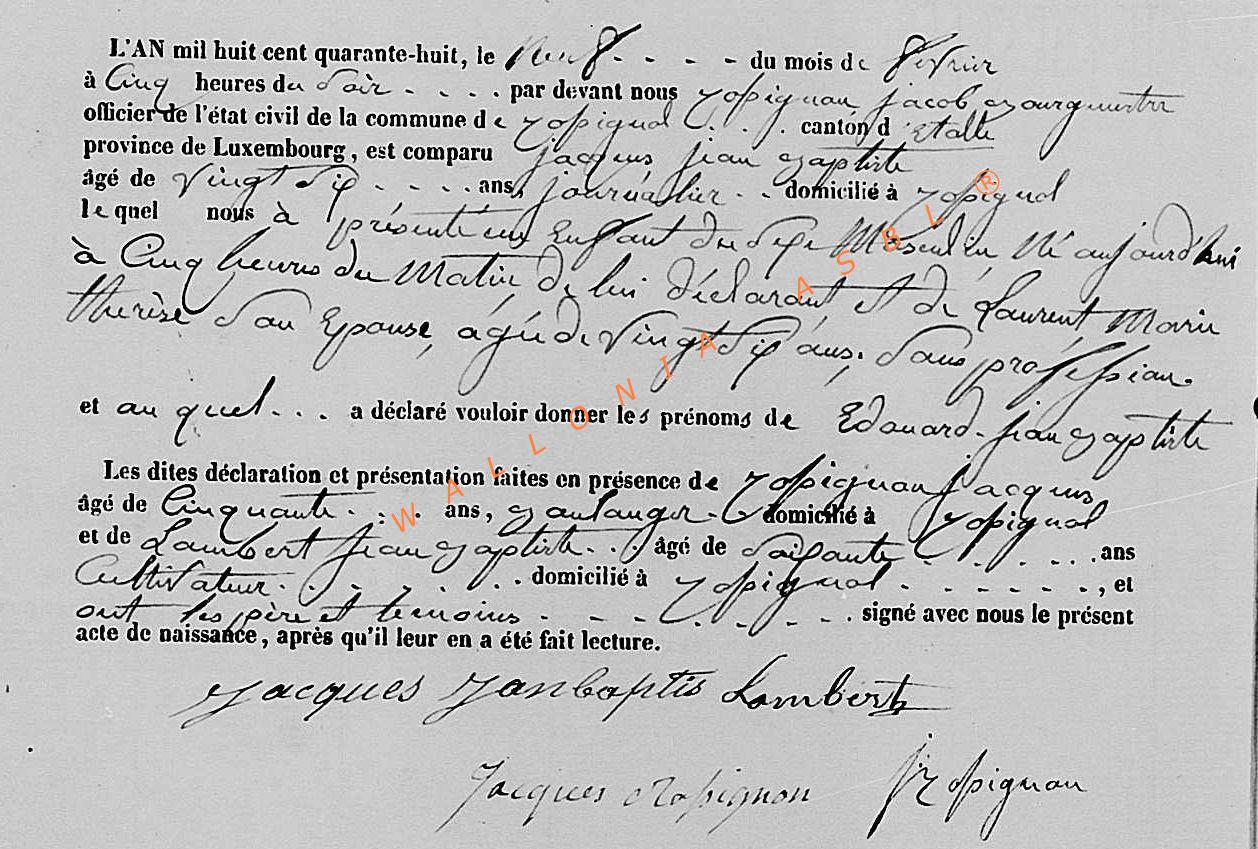 L'AN mil huit cent quarante-huit, le neuf - - - - du mois de février
à Cinq heures du soir - - - - par devant nous Rossignon, jacob, Bourgmestre
officier de l'état civil de la commune de Rossignol . . . canton d'Etalle
province de Luxembourg, est comparu jacques jean Baptiste
âgé de vingt six - - - - ans, journalier - - domicilié à Rossignol
lequel nous à présenté un Enfant du sexe Masculin, Né aujourd'hui
à Cinq heures du Matin, de lui déclarant, et de Laurent, Marie
thérèse son Epouse, agée de vingt six ans, sans profession.
et au quel - - - a déclaré vouloir donner les prénoms de Edouard-jean Baptiste
Les dites déclaration et présentation faites en présence de Rossignon jacques,
âgé de Cinquante - . . ans, Boulanger - domicilié à Rossignol
et de Lambert jean Baptiste - . . âgé de soixante - - - - - ans
Cultivateur - - - - - - domicilié à Rossignol - - - - - -, et
ont les père et témoins - - - - - - - - signé avec nous le présent
acte de naissance, après qu'il leur en a été fait lecture.
Jacques Janbaptis Lambert
Jacques Rossignon J Rossignon
WALLONIA ASBL ®